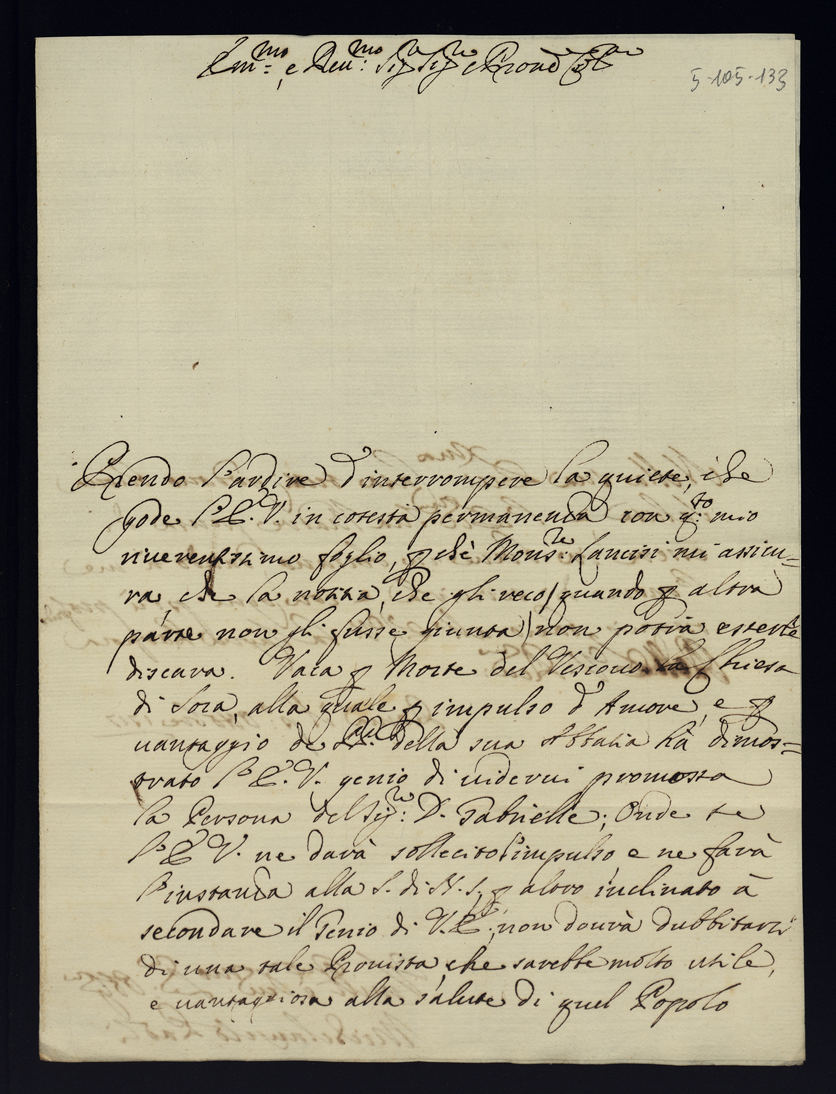 Em.mo e Reu.mo Sig.r Sig.r e Prone Col.mo
5-105-133
Prendo l'ardire d'interrompere la quiete, che
gode l'E.V. in cotesta permanenza con q.to mio
riuerentissimo foglio, p che Mons.re Lancisi mi assicu=
ra che la notizia, che gli reco (quando p altra
parte non gli fusse giunta) non potrà esserle
discara. Vaca p Morte del Vescouo la Chiesa
di Sora, alla quale p impulso d'Amore, e p
uantaggio de della sua Abbatia hà dimos=
trato l'E.V. genio di uederui promossa
la Persona del Sig.re D. Gabrielle; Onde se
l'E.V. ne darà sollecito l'impulso, e ne farà
l'instanza alla S. di N.S. p altro inclinato à
secondare il Genio di V.E., non dourà dubbitarsi
di una tale Prouista, che sarebbe molto utile,
e uantaggiosa alla salute di quel Popolo